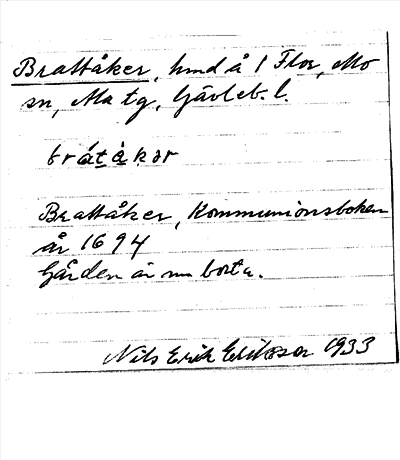 Brattåker, hmd å 1 Flor, Mo
sn, Ma tg, Gävleb. l.
bråtåkər
Brattåker, Kommunionsboken
år 1694
Gården är nu borta.
Nils Erik Eriksson 1933